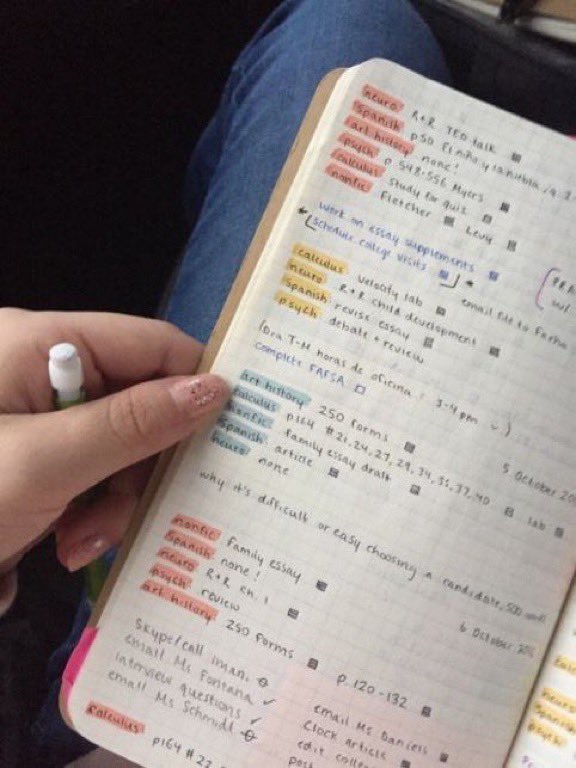 neuro R+R TED talk
Spanish p50 El niño y la niebla
art history none!
psych p 548-556 Myers
calculus Study for quiz
nonfic Fletcher Levy
work on essay supplements
schedule college visits
email file to Farha
calculus velocity lab
neuro R+R child development
Spanish revise essay
psych debate + review
(Dra T-M horas de oficina : 3-4 pm
complete FAFSA
5 October
art history 250 forms
calculus p164 # 21, 24, 27, 29, 34, 35, 37, 40 lab
nonfic family essay draft
Spanish article
neuro none
why it's difficult or easy choosing a candidate, 500
6 October
nonfic family essay
Spanish none!
neuro R+R ch. 1
psych review
art history 250 forms p. 120-132
skype/call imani
email Ms Fontana
interview questions
email Ms Schmidt
email Ms Daniels
clock article
edit
calculus p164 #